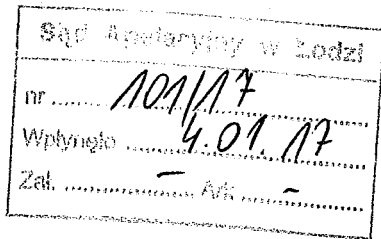 Sąd Apelacyjny w Łodzi
nr ..... 101/17
Wpłynęło ..... 4.01.17
Zał. ..... - Ark ..... -